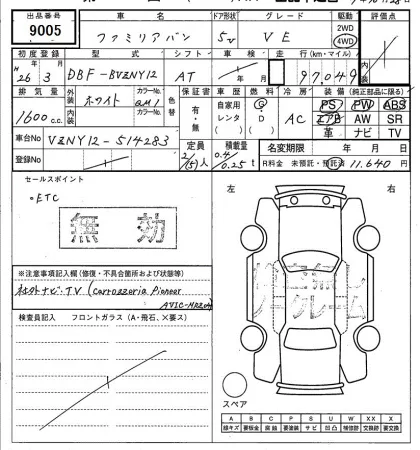 出品番号
9005
車名
ファミリアバン
ドア形状
5
グレード
VE
駆動
2WD
4WD
評価点
初度登録
H
26 3
型式
DBF-BVZNY12
シフト
AT
車検
年 月
走行(km・マイル)
97,049
排気量
1600 c.c.
外装
ホワイト
カラーNo.
QM1
内装
カラーNo.
色替
保証書
有・無
車歴
自家用
レンタ
( )
燃料
G
・
D
( )
冷房
AC
装備(純正部品に限る)
PS PW ABS
エアB AW SR
革 ナビ TV
車台No
VZNY12-514283
登録No
定員
2/(5)人
積載量
0.4/0.25 t
名変期限 年 月 日
R料金 未預託・預託済 11,640 円
セールスポイント
・ETC
無効
左 右
※注意事項記入欄(修復・不具合箇所および状態等)
社外ナビ・TV (carrozzeria Pioneer
検査員記入 フロントガラス(A・飛石、×要ス)
立無し
ノークレーム
スペア
A B C P S U W X XX
線キズ 要板金 腐蝕 要塗装 サビ 凹凸 補修跡 交換跡 要交換